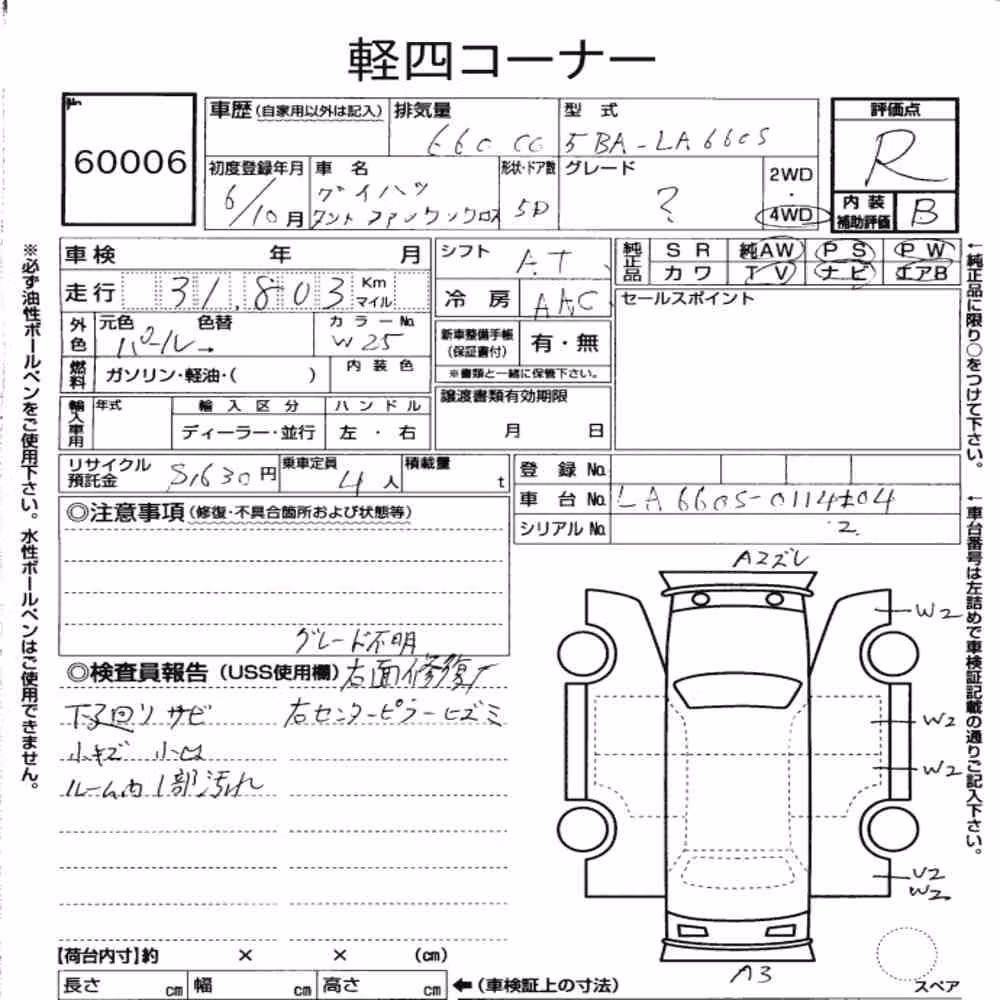 軽四コーナー
60006
車歴 (自家用以外は記入)
排気量
660 CC
型 式
5BA-LA660S
評価点
R
初度登録年月
6/10月
車 名
ダイハツ
タント ファンクロス
形状・ドア数
5D
グレード
?
2WD
・
4WD
内 装
補助評価
B
車検 年 月
走行 31,803 Km マイル
外色
元色 色替
パール→
カラーNo.
W25
燃料
ガソリン・軽油・( )
内 装 色
輸入車用
年式
輸 入 区 分
ディーラー・並行
ハ ン ド ル
左 ・ 右
シフト
AT
冷 房
AAC
新車整備手帳
(保証書付)
有・無
※書類と一緒に保管下さい。
譲渡書類有効期限
月 日
純正品
S R 純AW P S P W
カ ワ T V ナ ビ エアB
セールスポイント
リサイクル
預託金
8,630円
乗車定員
4人
積載量
t
登 録 No.
車 台 No. LA660S-0114104
シリアル No. 2
◎注意事項 (修復・不具合箇所および状態等)
グレード不明
◎検査員報告 (USS使用欄)
右面修復歴
下廻りサビ
右センターピラーヒズミ
小キズ 小凹
ルーム内1部汚れ
A2ズレ
W2
W2
W2
U2
W2
A3
スペア
【荷台内寸】約 × × (cm)
長さ cm 幅 cm 高さ cm
←(車検証上の寸法)
※必ず油性ボールペンをご使用下さい。水性ボールペンはご使用できません。
←純正品に限り○をつけて下さい。
←車台番号は左詰めで車検証記載の通りご記入下さい。